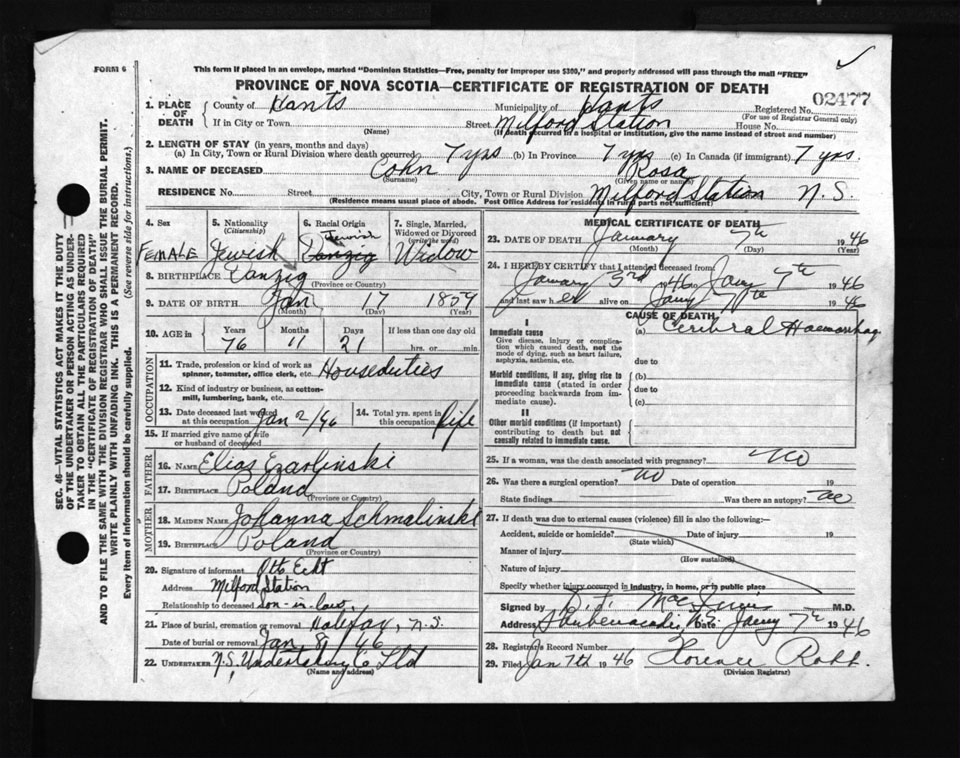 FORM 6
This form if placed in an envelope, marked "Dominion Statistics—Free, penalty for improper use $300," and properly addressed will pass through the mail "FREE"
PROVINCE OF NOVA SCOTIA—CERTIFICATE OF REGISTRATION OF DEATH
02477
1. PLACE OF DEATH County of Hants Municipality of Hants Registered No.
(For use of Registrar General only)
If in City or Town Street Milford Station House No.
(Name) (If death occurred in a hospital or institution, give the name instead of street and number)
2. LENGTH OF STAY (in years, months and days)
(a) In City, Town or Rural Division where death occurred 7 yrs (b) In Province 7 yrs (c) In Canada (if immigrant) 7 yrs.
3. NAME OF DECEASED Cohn Rosa
(Surname) (Given name or names)
RESIDENCE No. Street City, Town or Rural Division Milford Station N.S.
(Residence means usual place of abode. Post Office Address for residents in rural parts not sufficient)
4. Sex FEMALE
5. Nationality (Citizenship) Jewish
6. Racial Origin Jewish Danzig
7. Single, Married, Widowed or Divorced (write the word) Widow
8. BIRTHPLACE Danzig
(Province or Country)
9. DATE OF BIRTH Jan 17 1869
(Month) (Day) (Year)
10. AGE in Years Months Days If less than one day old
76 11 21 hrs. or min.
OCCUPATION
11. Trade, profession or kind of work as spinner, teamster, office clerk, etc. Houseduties
12. Kind of industry or business, as cotton-mill, lumbering, bank, etc.
13. Date deceased last worked at this occupation Jan 2/46
14. Total yrs. spent in this occupation life
15. If married give name of wife or husband of deceased
FATHER
16. NAME Elias
17. BIRTHPLACE Poland
(Province or Country)
MOTHER
18. MAIDEN NAME Johanna Schmalinski
19. BIRTHPLACE Poland
(Province or Country)
20. Signature of informant Otto Echt
Address Milford Station
Relationship to deceased son-in-law
21. Place of burial, cremation or removal Halifax, N.S.
Date of burial or removal Jan 8 46
22. UNDERTAKER N.S. Undertaking Co Ltd
(Name and address)
MEDICAL CERTIFICATE OF DEATH
23. DATE OF DEATH January 7th 1946
(Month) (Day)
24. I HEREBY CERTIFY that I attended deceased from
January 3rd 1946 to Jany 7th 1946
and last saw her alive on Jany 7th 1946
CAUSE OF DEATH
I
Immediate cause (a) Ceribral Haemorrhag
Give disease, injury or complication which caused death, not the mode of dying, such as heart failure, asphyxia, asthenia, etc.
due to
Morbid conditions, if any, giving rise to immediate cause (stated in order proceeding backwards from immediate cause)
(b)
due to
(c)
II
Other morbid conditions (if important) contributing to death but not causally related to immediate cause.
25. If a woman, was the death associated with pregnancy? no
26. Was there a surgical operation? no Date of operation 19
State findings Was there an autopsy?
27. If death was due to external causes (violence) fill in also the following:—
Accident, suicide or homicide? Date of injury 19
(State which)
Manner of injury
(How sustained)
Nature of injury
Specify whether injury occurred in industry, in home, or in public place
Signed by M.D.
Address Shubenacadie N.S. Date Jany 7th 1946
28. Registrar's Record Number
29. Filed Jan 7th 1946 Florence
(Division Registrar)
SEC. 46—VITAL STATISTICS ACT MAKES IT THE DUTY
OF THE UNDERTAKER OR PERSON ACTING AS UNDER-
TAKER TO OBTAIN ALL THE PARTICULARS REQUIRED
IN THE "CERTIFICATE OF REGISTRATION OF DEATH"
AND TO FILE THE SAME WITH THE DIVISION REGISTRAR WHO SHALL ISSUE THE BURIAL PERMIT.
WRITE PLAINLY WITH UNFADING INK. THIS IS A PERMANENT RECORD.
Every item of information should be carefully supplied. (See reverse side for instructions.)